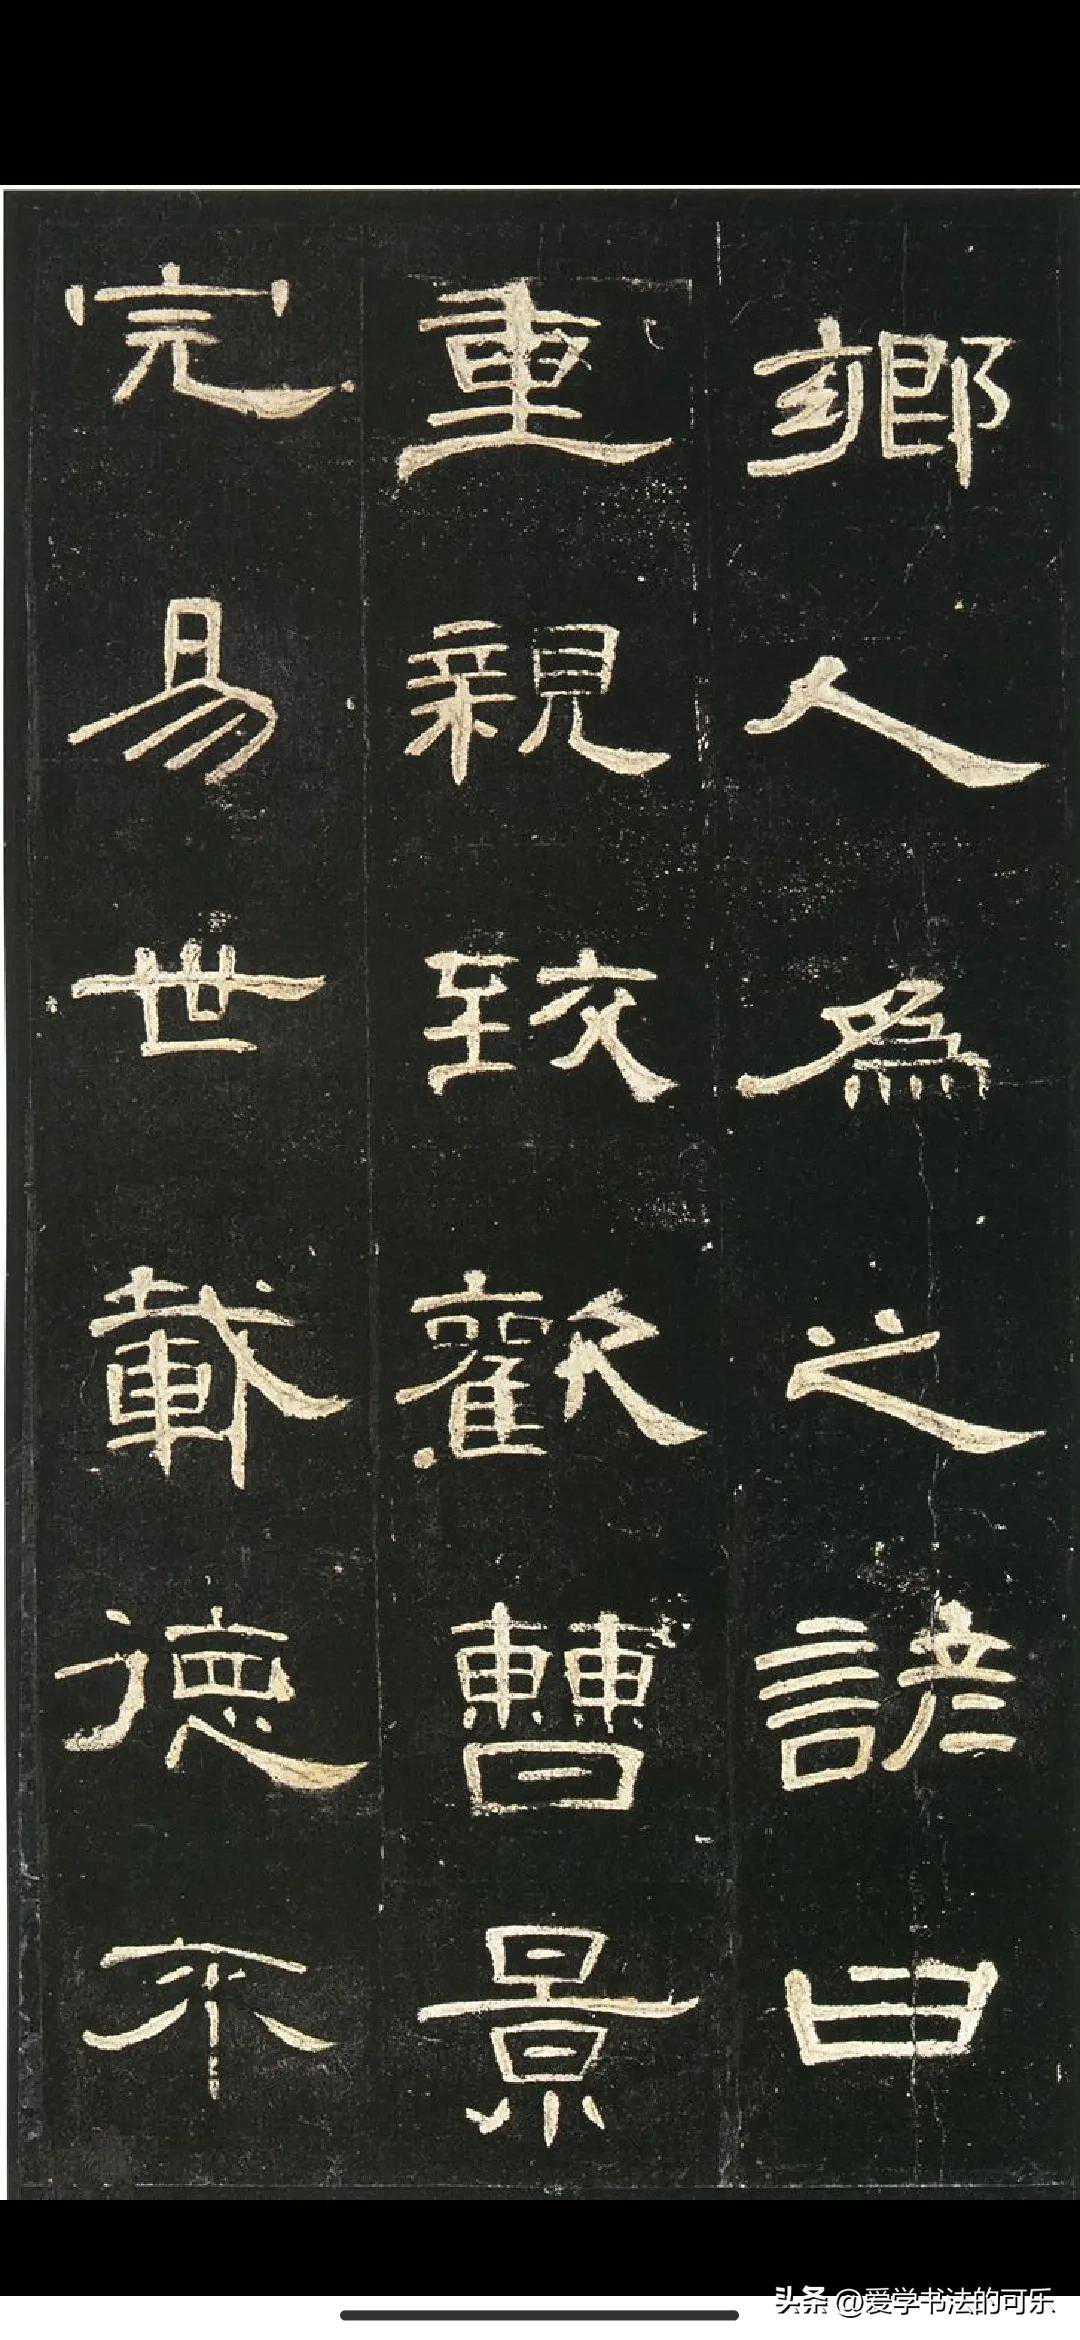 鄉人為之諺曰
重親致歡曹景
完易世載德不
头条 @爱学书法的可乐